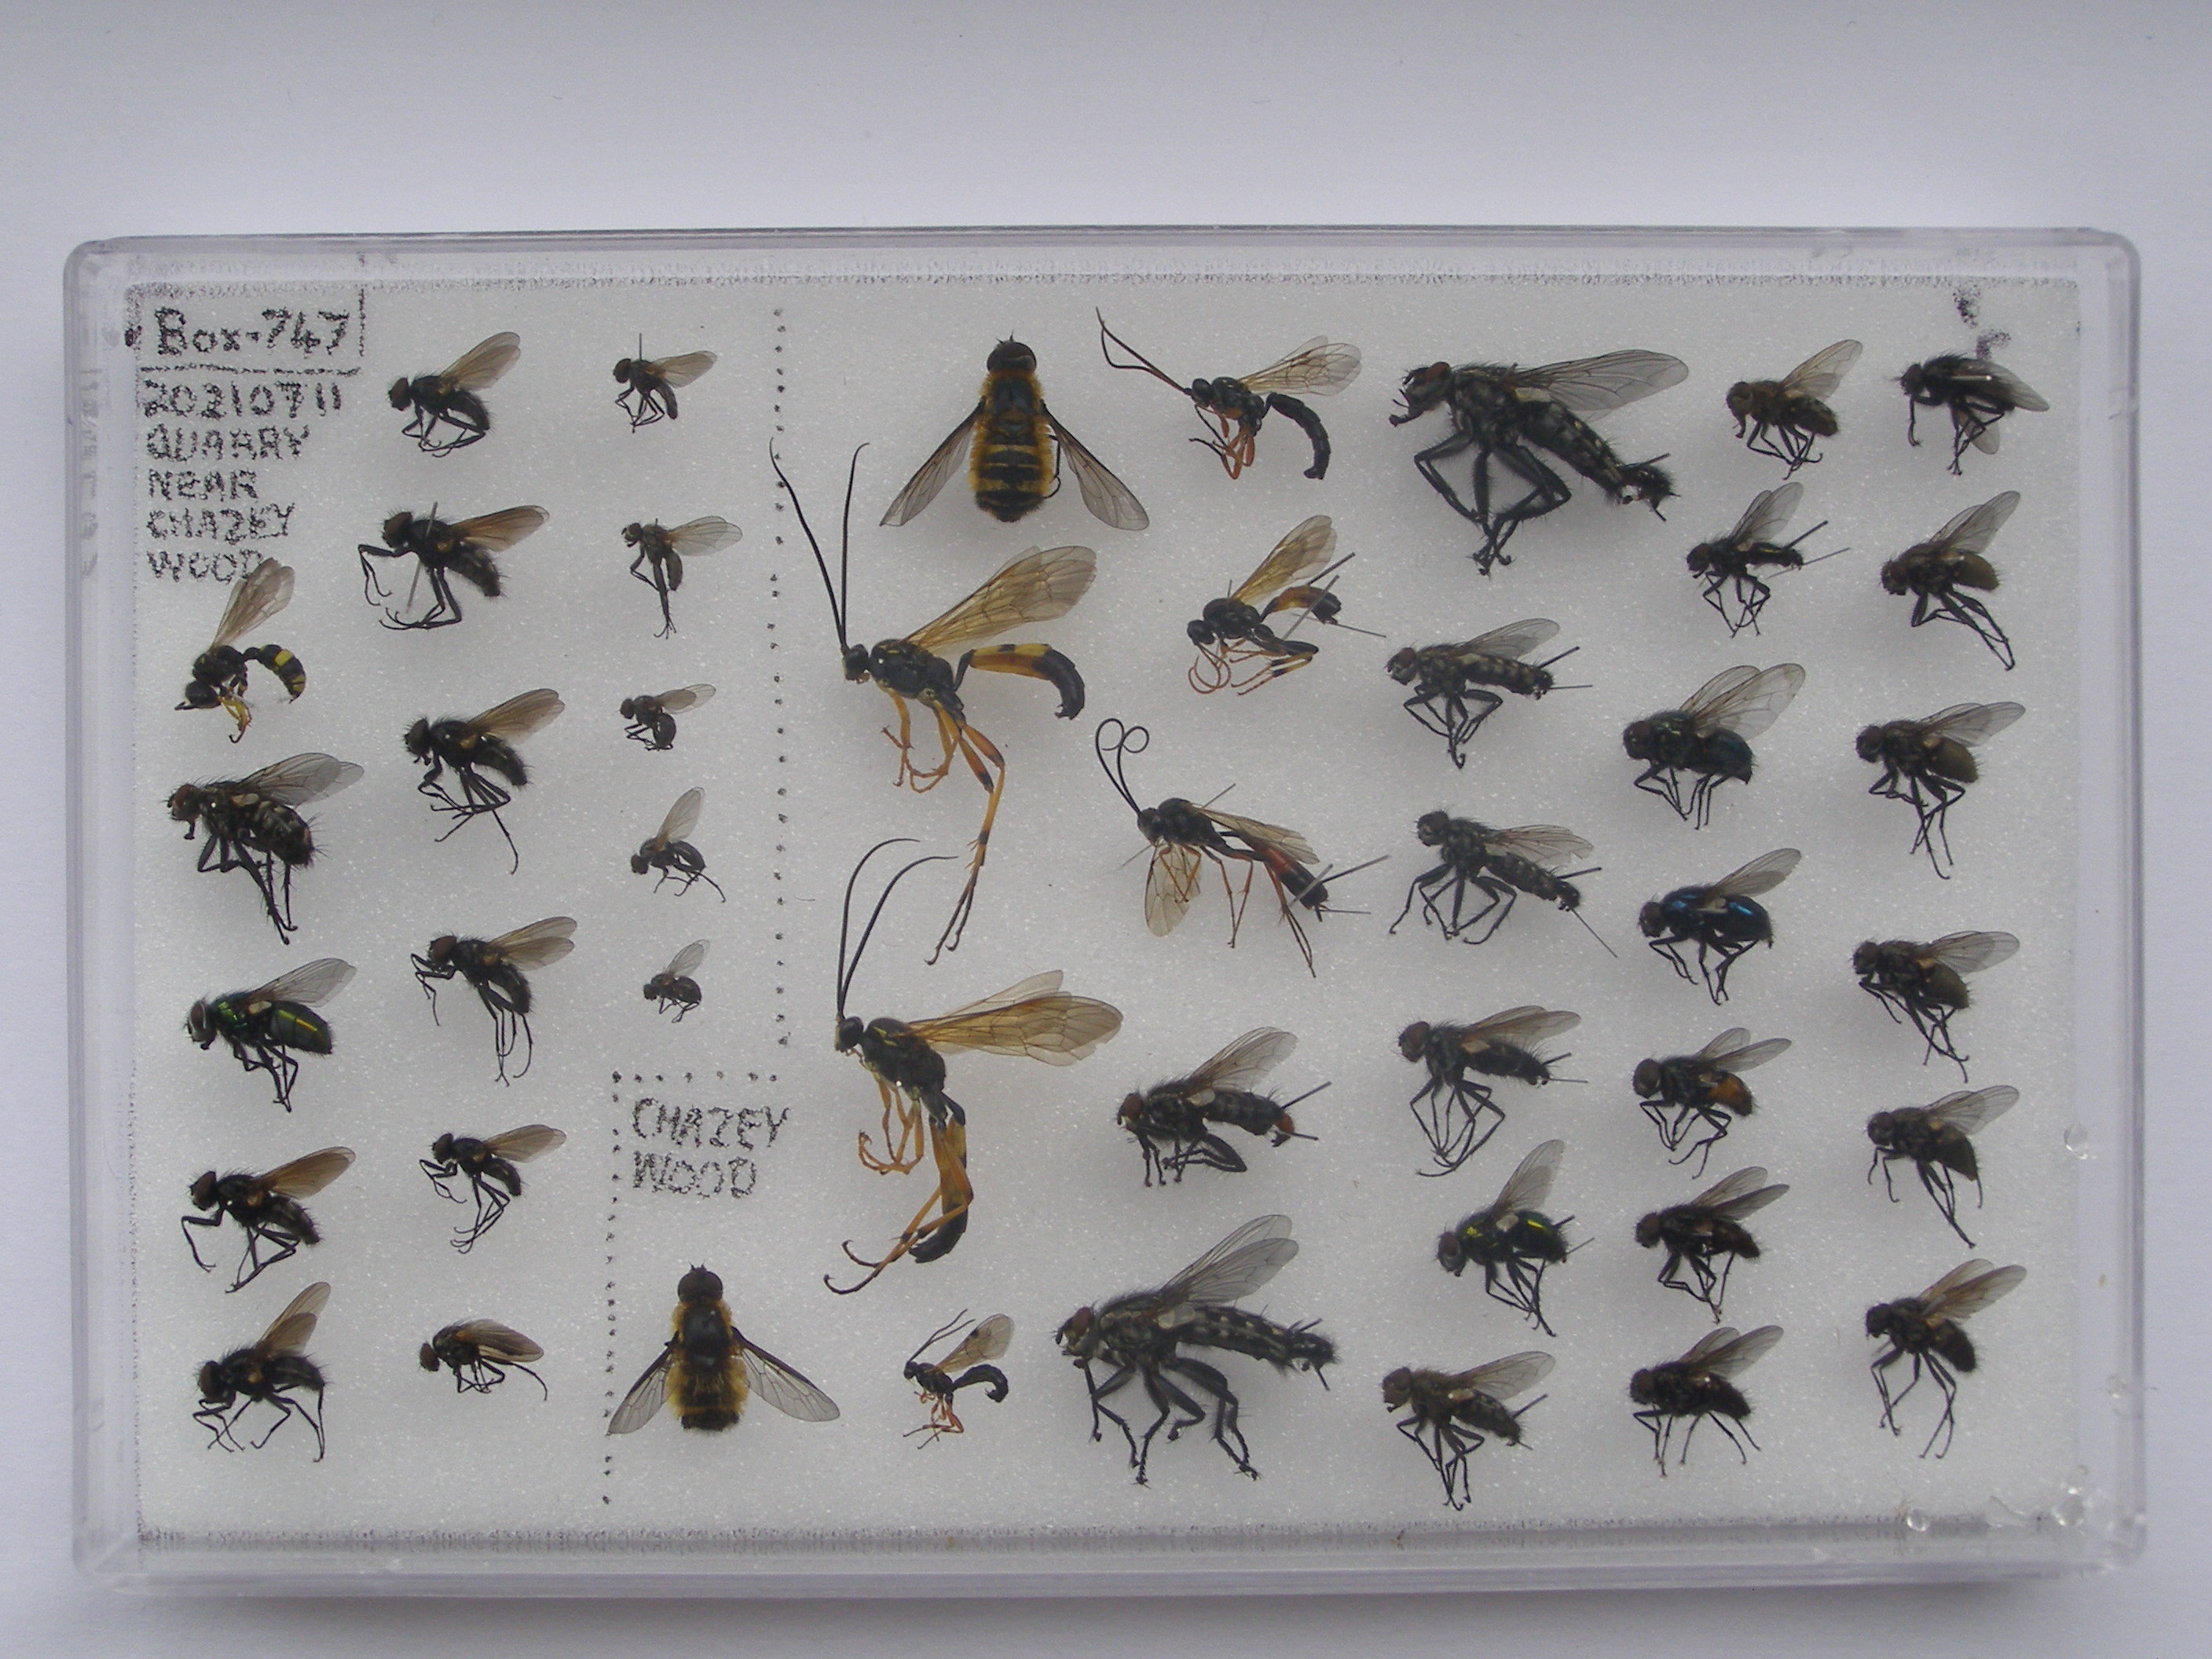 Box-747
20210711
QUARRY
NEAR
CHAZEY
WOOD
CHAZEY
WOOD